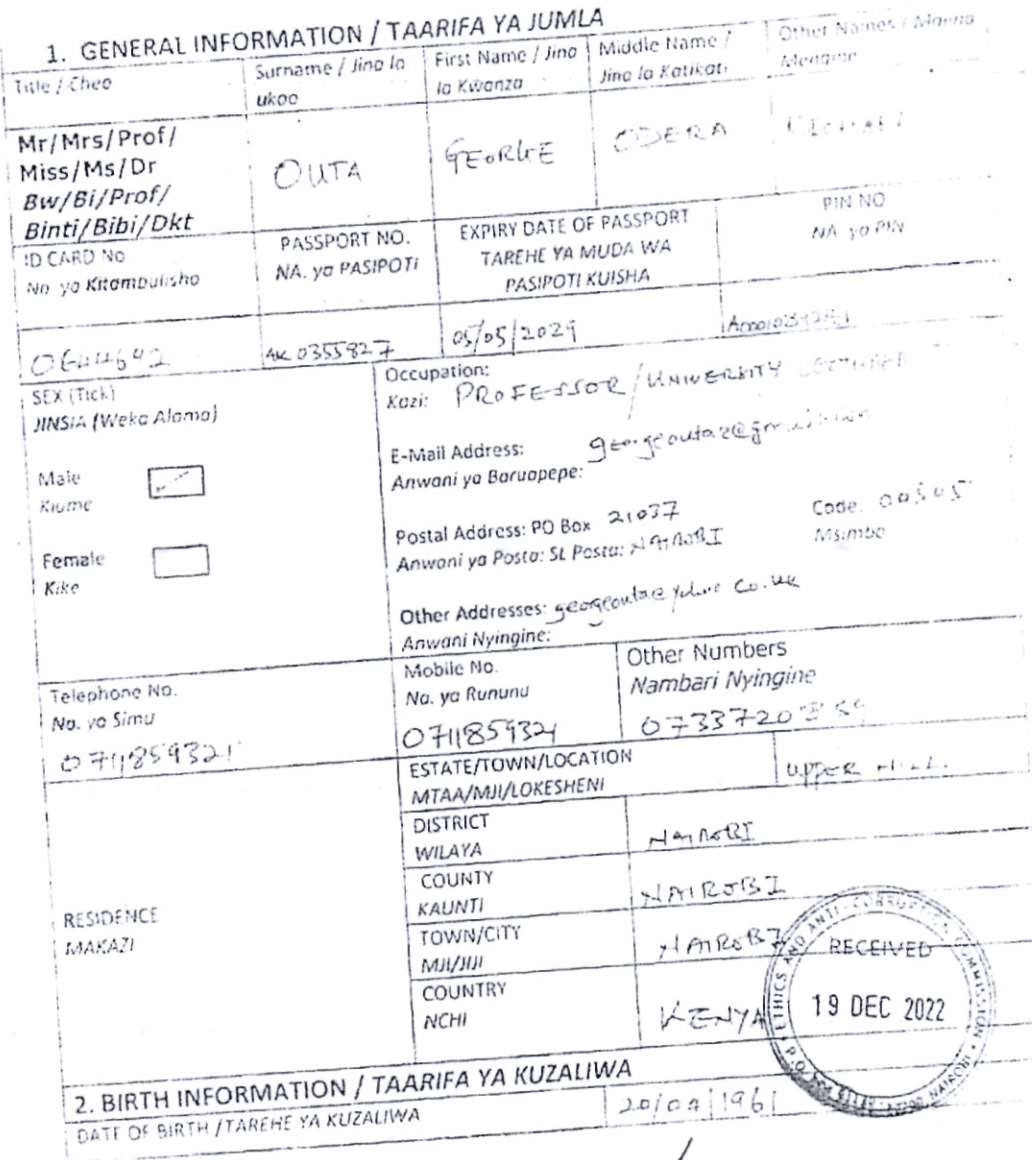 1. GENERAL INFORMATION / TAARIFA YA JUMLA
Title / Cheo
Surname / Jina la ukoo
First Name / Jina la Kwanza
Middle Name / Jina la Katikati
Other Names / Majina Mengine
Mr/Mrs/Prof/
Miss/Ms/Dr
Bw/Bi/Prof/
Binti/Bibi/Dkt
OUTA
GEORGE
ODERA
ID CARD No.
No. ya Kitambulisho
PASSPORT NO.
NA. ya PASIPOTI
EXPIRY DATE OF PASSPORT
TAREHE YA MUDA WA
PASIPOTI KUISHA
PIN NO
NA. ya PIN
AK 0355827
05/05/2029
SEX (Tick)
JINSIA (Weka Alama)
Male
Kiume
Female
Kike
Occupation:
Kazi: PROFESSOR / UNIVERSITY LECTURER
E-Mail Address:
Anwani ya Baruapepe:
Postal Address: PO Box 21037
Anwani ya Posta: SL Posta: NAIROBI
Code: 00505
Msimbo
Other Addresses:
Anwani Nyingine:
Telephone No.
No. ya Simu
0711859321
Mobile No.
Na. ya Rununu
0711859321
Other Numbers
Nambari Nyingine
RESIDENCE
MAKAZI
ESTATE/TOWN/LOCATION
MTAA/MJI/LOKESHENI
UPPER HILL
DISTRICT
WILAYA
NAIROBI
COUNTY
KAUNTI
NAIROBI
TOWN/CITY
MJI/JIJI
NAIROBI
COUNTRY
NCHI
KENYA
ETHICS AND ANTI-CORRUPTION COMMISSION
RECEIVED
19 DEC 2022
2. BIRTH INFORMATION / TAARIFA YA KUZALIWA
DATE OF BIRTH / TAREHE YA KUZALIWA
1961